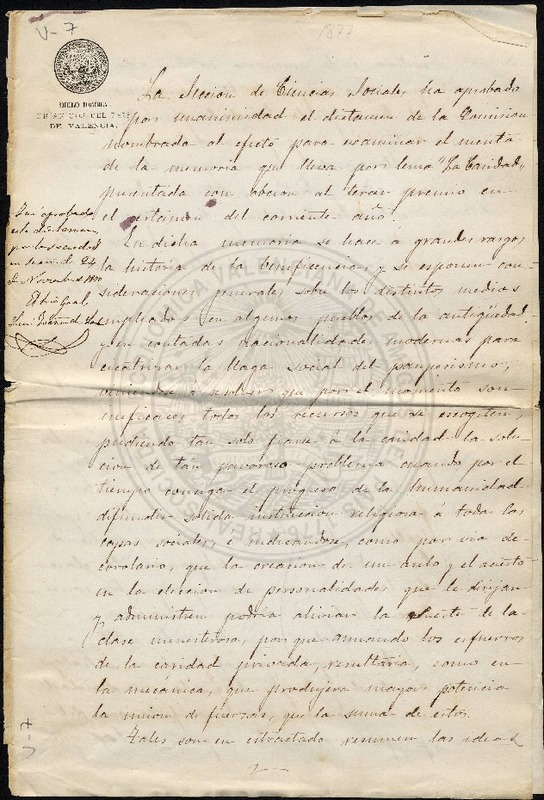 V-7
1877
SOCIEDAD ECONÓMICA
DE AMIGOS DEL PAIS
DE VALENCIA.
La Seccion de Ciencias Sociales ha aprobado
por unanimidad el dictamen de la Comision
nombrada al efecto para examinar el mérito
de la memoria que lleva por lema "La Caridad,,
presentada con opcion al tercer premio en
el certamen del corriente año.
En dicha memoria se hace a grandes rasgos
la historia de la beneficencia, y se exponen con-
sideraciones generales sobre los distintos medios
empleados en algunos pueblos de la antigüedad
y en contadas nacionalidades modernas para
cicatrizar la llaga social del pauperismo,
viniéndose a que por el momento son
ineficaces todos los recursos que se escogiten,
pudiendo tan solo fiarse á la caridad la solu-
cion de tan pavoroso problema cuando por el
tiempo consiga el progreso de la humanidad
difundir solida instruccion religiosa a todas las
capas sociales, é indicandose, como por via de
corolario, que la creacion de un asilo y el acierto
en la eleccion de personalidades que le dirijan
y administren podria aliviar la suerte de la
clase menesterosa, por que aunando los esfuerzos
de la caridad privada, resultaria, como en
la mecánica, que produjera mayor potencia
la union de fuerzas, que la suma de estas.
Tales son en estractado resumen las ideas
Fué aprobado
este dictamen
por la sociedad
en sesion del 24
de Noviembre
El Srio Gral,
V-7